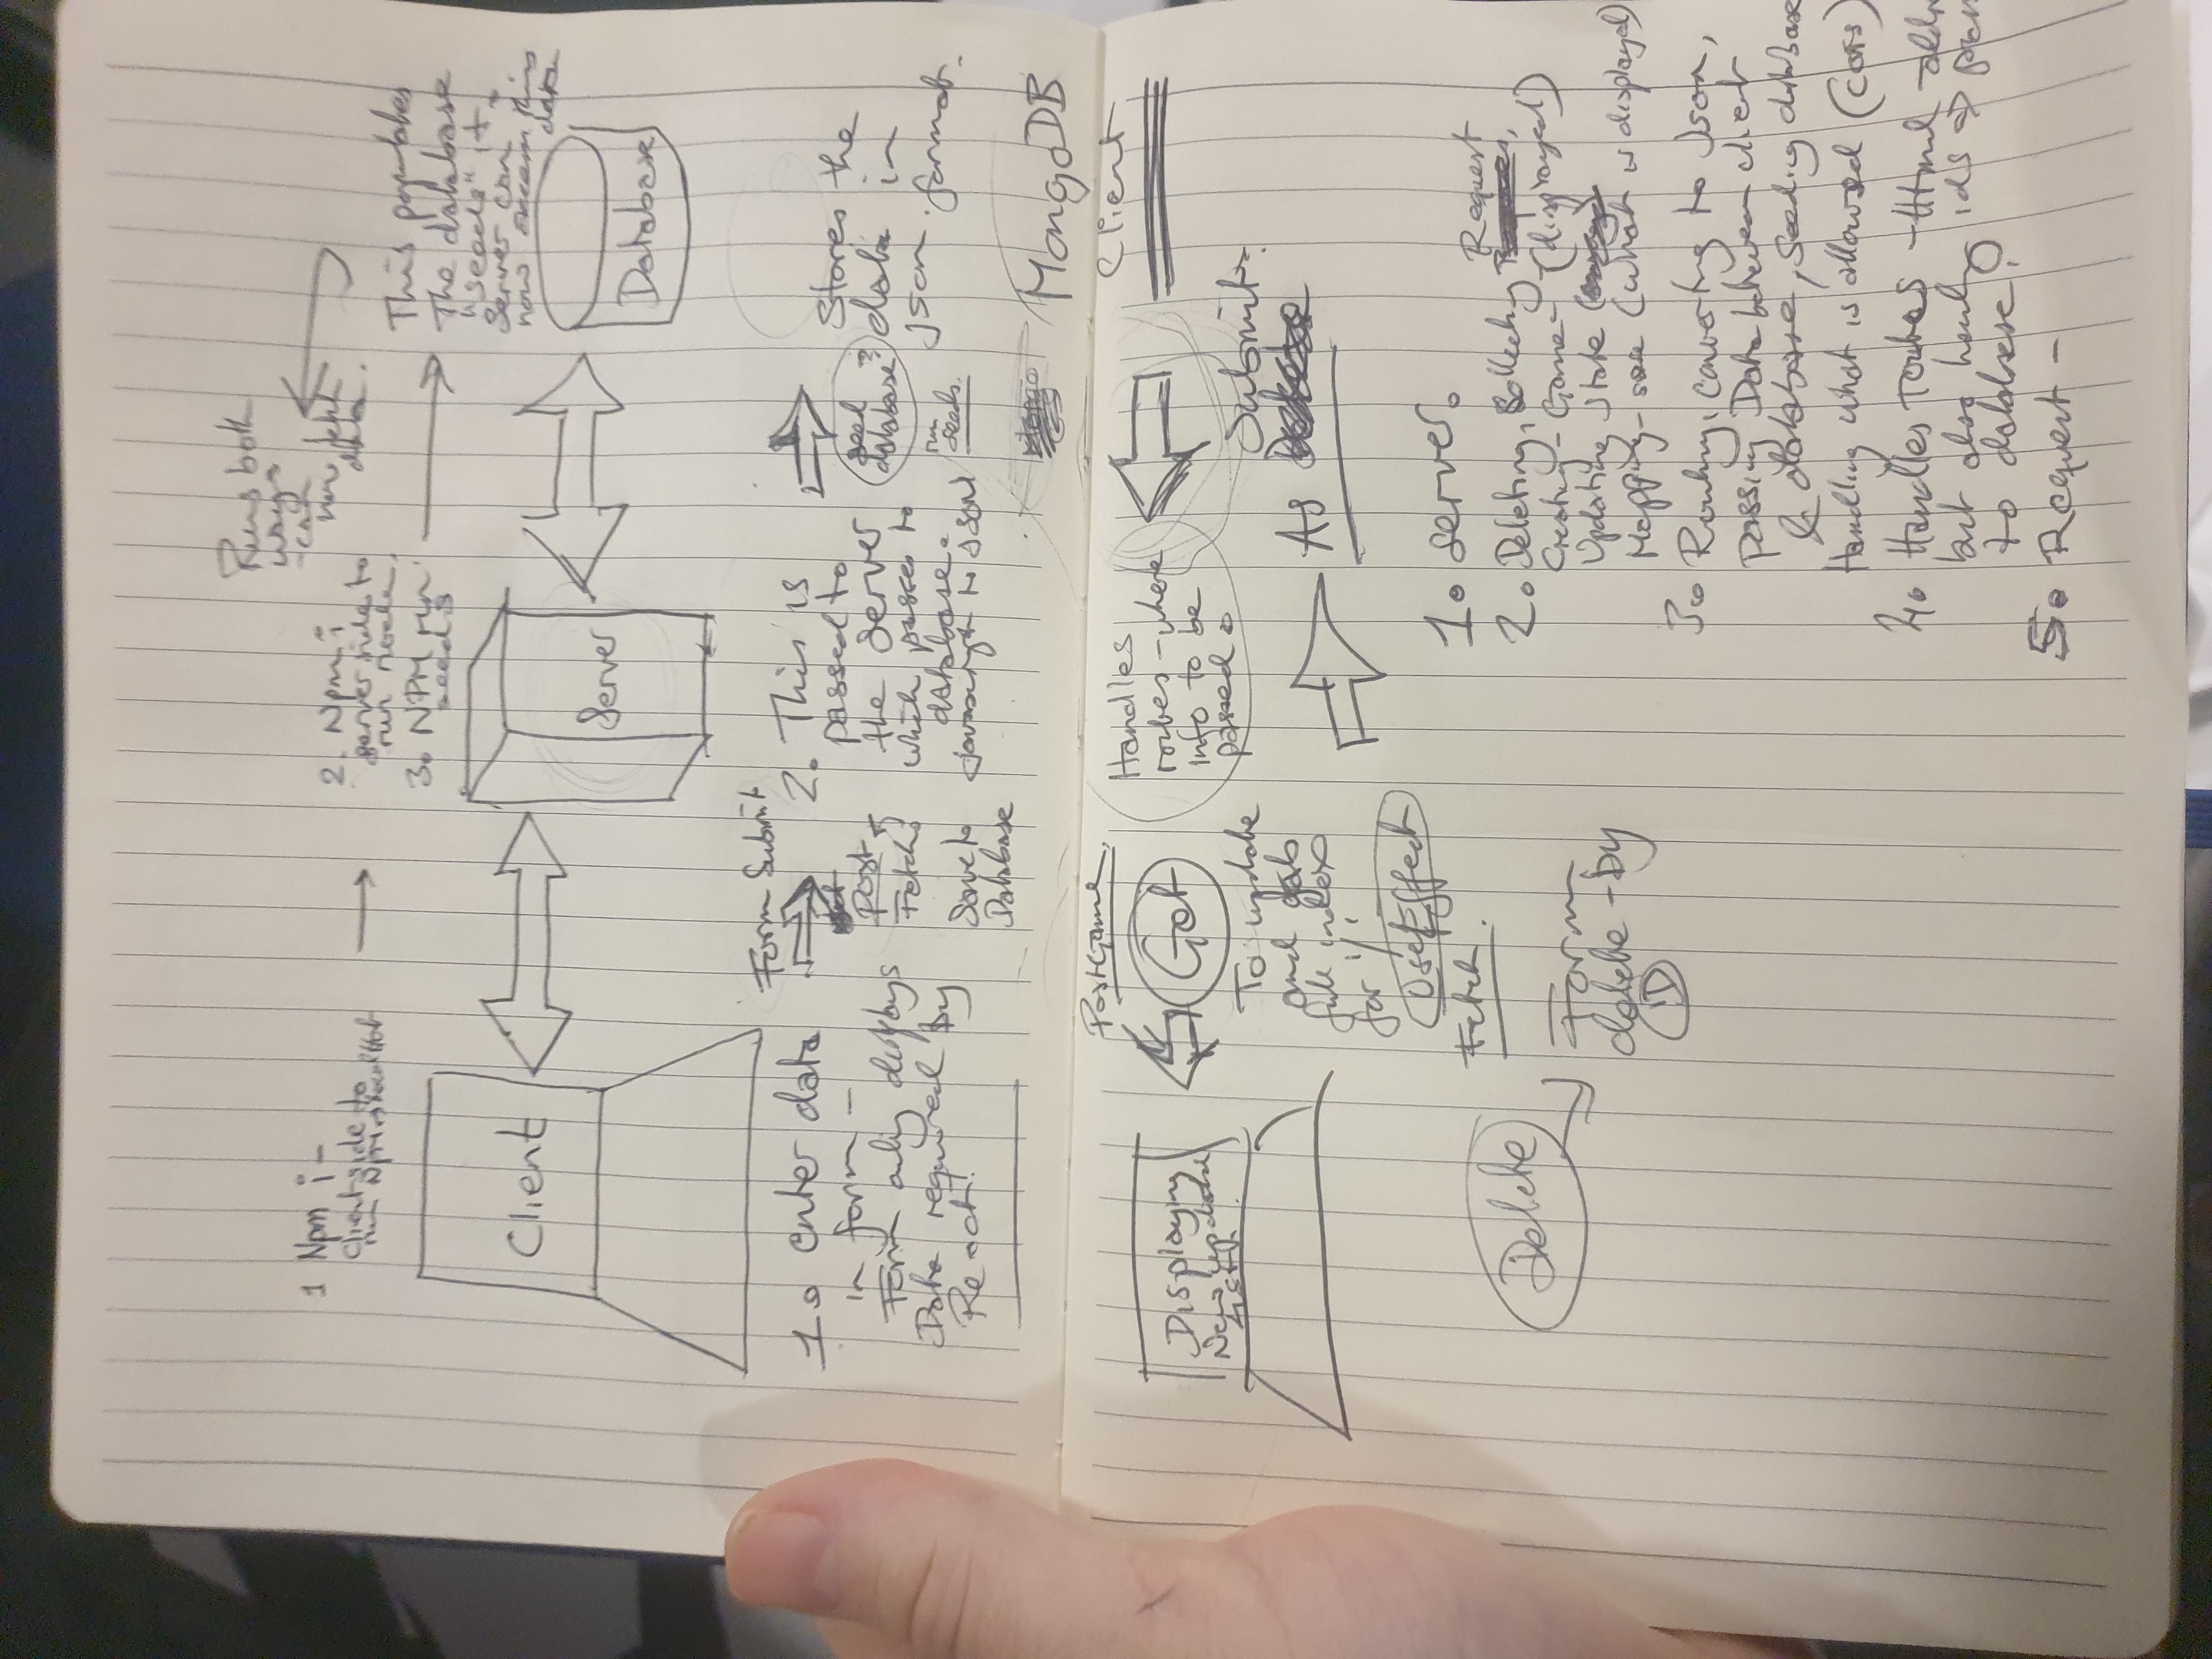 Runs both
ways
- can
now fetch
data.
1 Npm i -
Client side to
run Npm
2. Npm i
server side to
run node.
3. NPM run
seeds
This populates
The database
"seeds" it.
Server can
now access this
data
Client
Server
Database
Form Submit
1. enter data
in form -
Form only displays
Data required by
React.
Post
Fetch.
Save to
Database
2. This is
passed to
the Server
which passes to
database.
Javascript to JSON
seed
database?
run
seeds.
Stores the
data in
json. format.
MongoDB
Client
PostGame.
Displaying
New updated
Get
To update
and grab
full index
for '/'.
UseEffect
Fetch.
Handles
routes - where
info to be
passed.
Submit.
As
Delete
Form
delete - by
ID
1. Server.
2. Deleting, Request
Creating - Game - (displayed)
Updating State
Mapping - (what is displayed)
3. Routing, converting to Json,
passing Data between client
& database, Seeding database
Handling what is allowed (cors)
4. Handles routes - Html
but also ids →
to database.
5. Request -